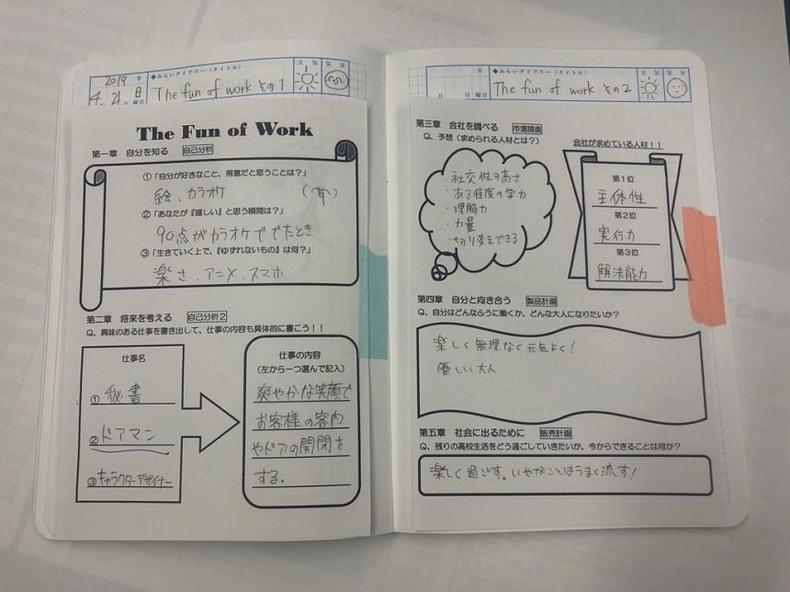 2019 年
月 21 日 曜日
◆みらいダイアリー(タイトル)
The fun of work その1
天気 気分
The Fun of Work
第一章 自分を知る 自己分析
①「自分が好きなこと、得意だと思うことは?」
絵、カラオケ
②「あなたが『嬉しい』と思う瞬間は?」
90点がカラオケででたとき
③「生きていく上で、『ゆずれないもの』は何?」
楽さ、アニメ、スマホ
第二章 将来を考える 自己分析2
Q、興味のある仕事を書き出して、仕事の内容も具体的に書こう!!
仕事名
①秘書
②ドアマン
③キャラクターデザイナー
仕事の内容
(左から一つ選んで記入)
爽やかな笑顔で
お客様の案内
やドアの開閉を
する。
年
月 日 曜日
◆みらいダイアリー(タイトル)
The fun of work その2
天気 気分
第三章 会社を調べる 市場調査
Q、予想(求められる人材とは?)
・社交性の高さ
・ある程度の学力
・理解力
・力量
・切り変えできる
会社が求めている人材!!
第1位
主体性
第2位
実行力
第3位
解決能力
第四章 自分と向き合う 製品計画
Q、自分はどんなふうに働くか、どんな大人になりたいか?
楽しく無理なく元気よく!
優しい大人
第五章 社会に出るために 販売計画
Q、残りの高校生活をどう過ごしていきたいか、今からできることは何か?
楽しく過ごす。いやなことはうまく流す!